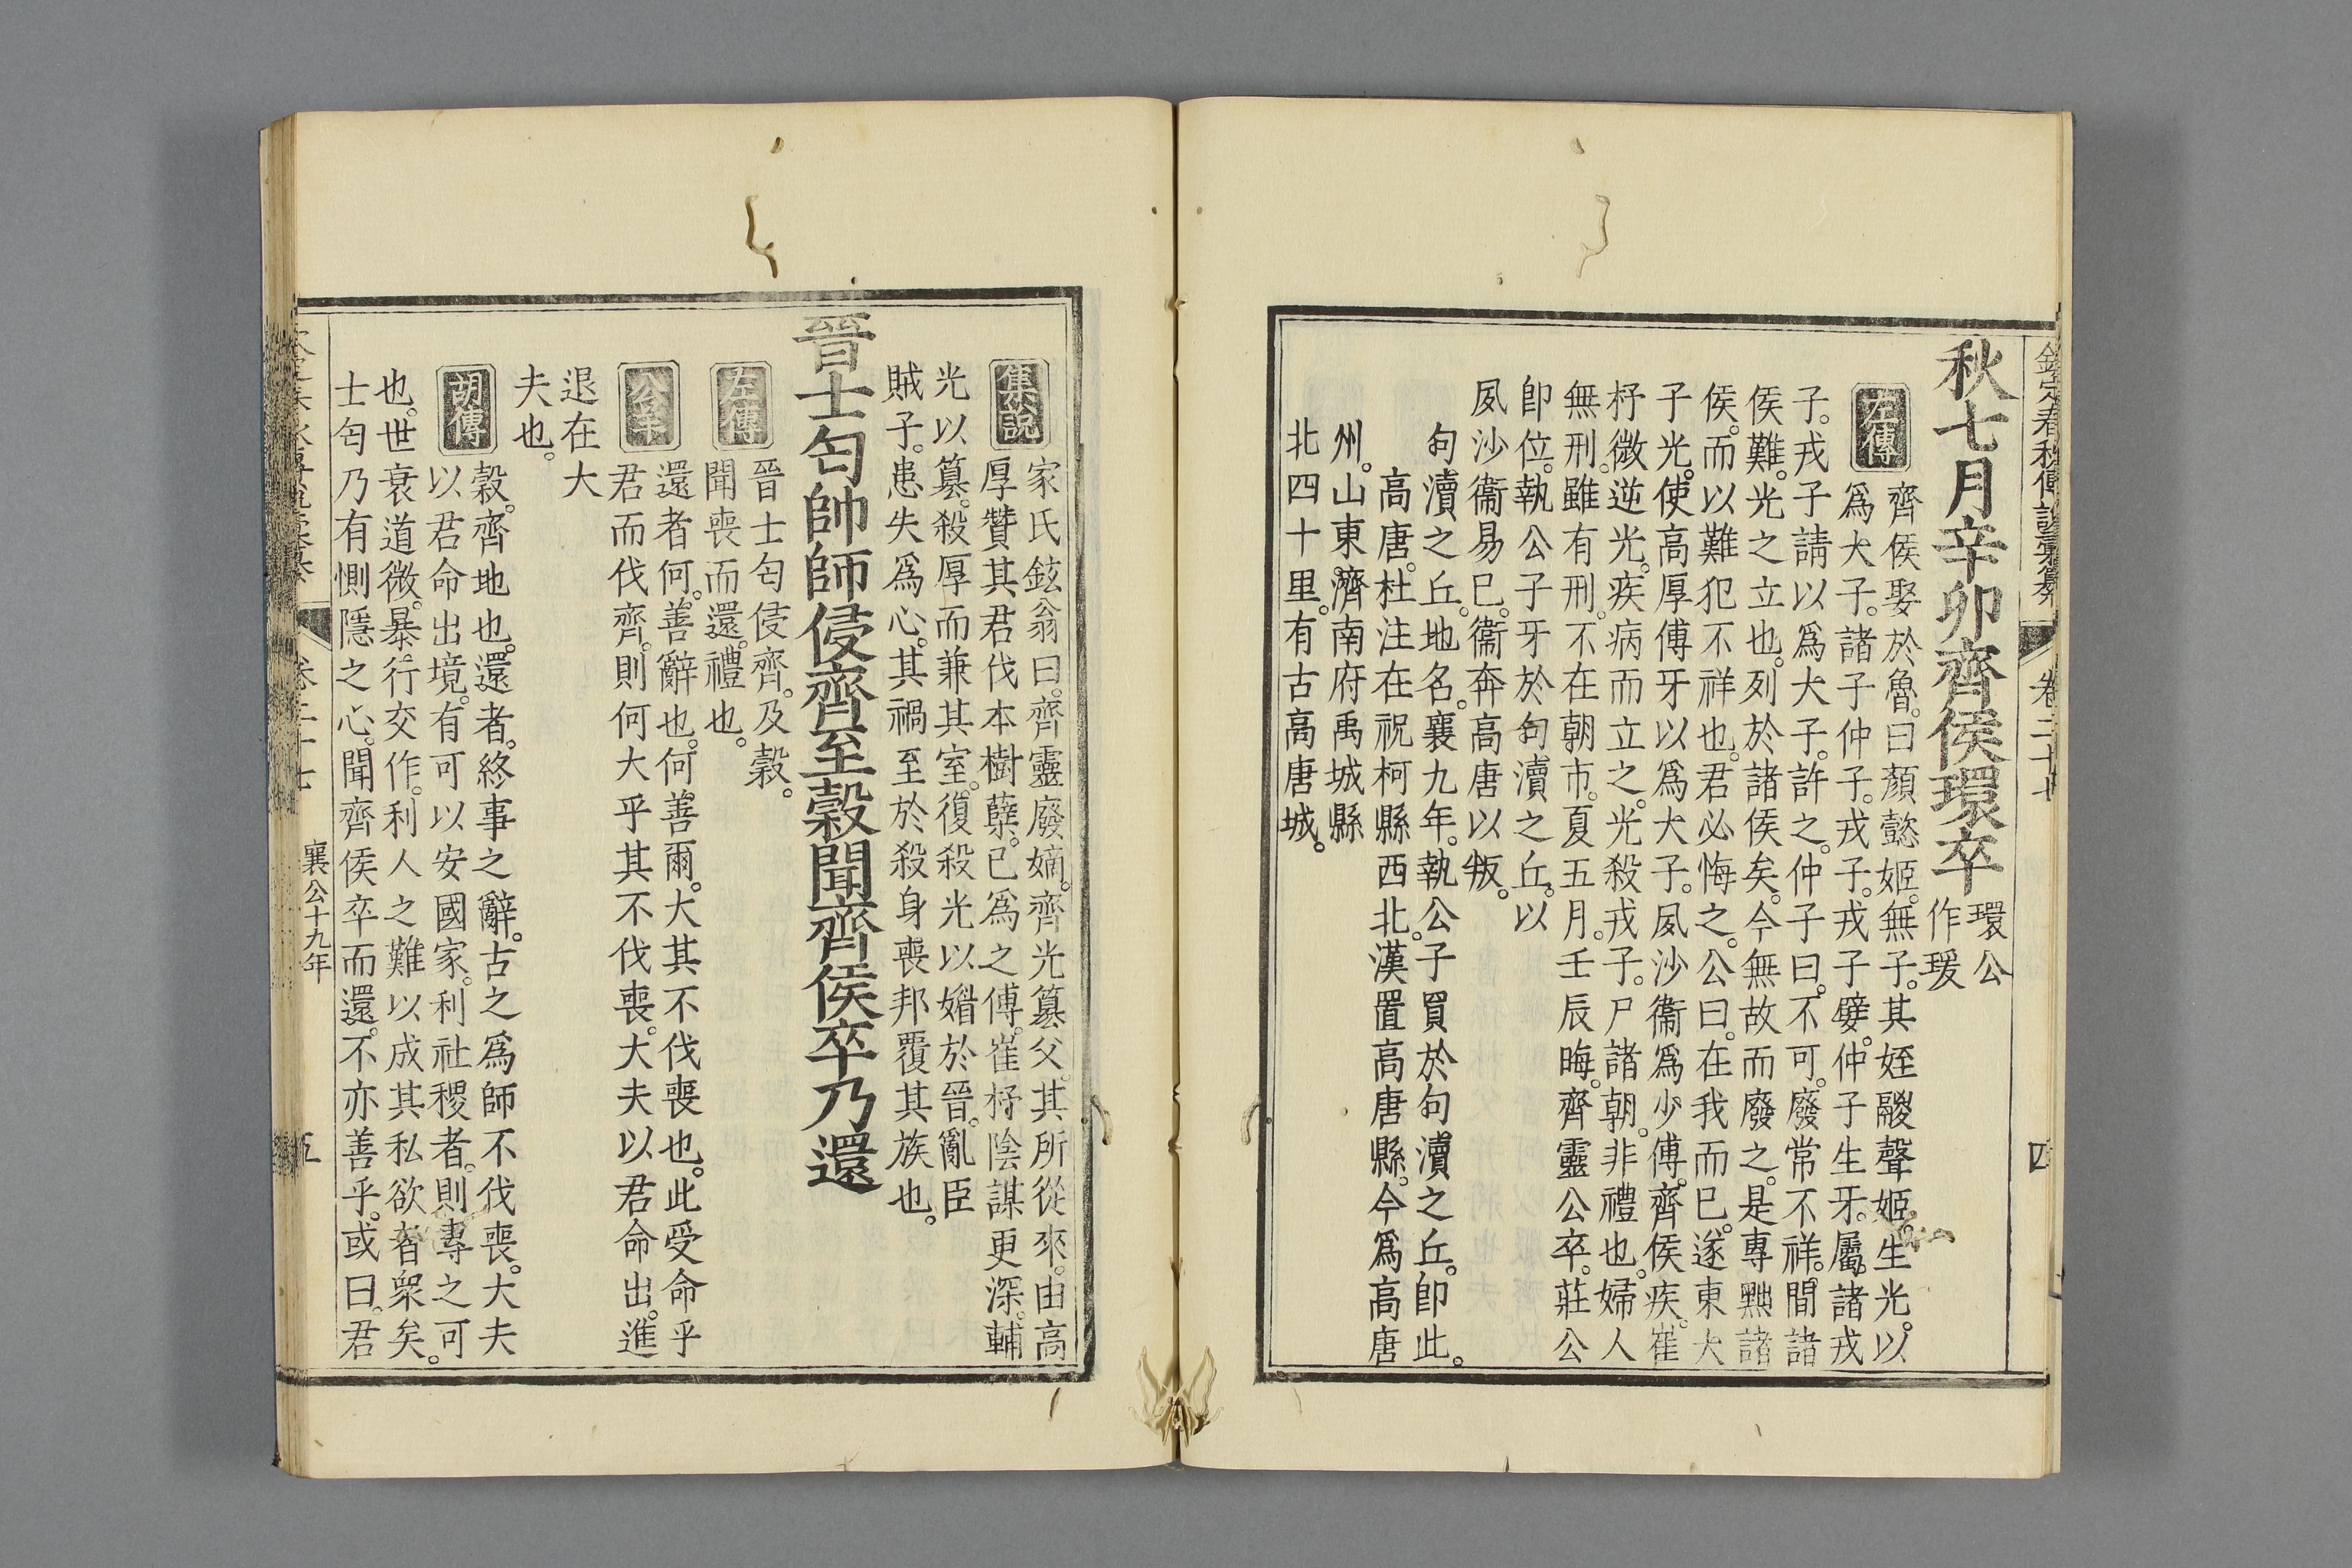 欽定春秋傳說彙纂 卷二十七 四
秋七月辛卯齊侯環卒 環公
作瑗
左傳 齊侯娶於魯。曰顏懿姬。無子。其姪鬷聲姬。生光。以
爲大子。諸子仲子。戎子。戎子嬖。仲子生牙。屬諸戎
子。戎子請以爲大子。許之。仲子曰。不可。廢常不祥。間諸
侯難。光之立也。列於諸侯矣。今無故而廢之。是專黜諸
侯。而以難犯不祥也。君必悔之。公曰。在我而已。遂東大
子光。使高厚傅牙以爲大子。夙沙衞爲少傅。齊侯疾。崔
杼微逆光。疾病而立之。光殺戎子。尸諸朝。非禮也。婦人
無刑。雖有刑。不在朝市。夏五月。壬辰晦。齊靈公卒。莊公
卽位。執公子牙於句瀆之丘。以
夙沙衞易已。衞奔高唐以叛。
句瀆之丘。地名。襄九年。執公子買於句瀆之丘。卽此。
高唐。杜注在祝柯縣西北。漢置高唐縣。今爲高唐
州。山東濟南府禹城縣
北四十里。有古高唐城。
集說 家氏鉉翁曰。齊靈廢嫡。齊光簒父。其所從來。由高
厚贊其君伐本樹孽。已爲之傅。崔杼陰謀更深。輔
光以簒。殺厚而兼其室。復殺光以媚於晉。亂臣
賊子。患失爲心。其禍至於殺身喪邦覆其族也。
晉士匄帥師侵齊至榖聞齊侯卒乃還
左傳 晉士匄侵齊。及榖。
聞喪而還。禮也。
公羊 還者何。善辭也。何善爾。大其不伐喪也。此受命乎
君而伐齊。則何大乎其不伐喪。大夫以君命出。進
退在大
夫也。
榖。齊地也。還者。終事之辭。古之爲師不伐喪。大夫
胡傳 以君命出境。有可以安國家。利社稷者。則專之可
也。世衰道微。暴行交作。利人之難以成其私欲者衆矣。
士匄乃有惻隱之心。聞齊侯卒而還。不亦善乎。或曰。君
卷二十七 襄公十九年 五